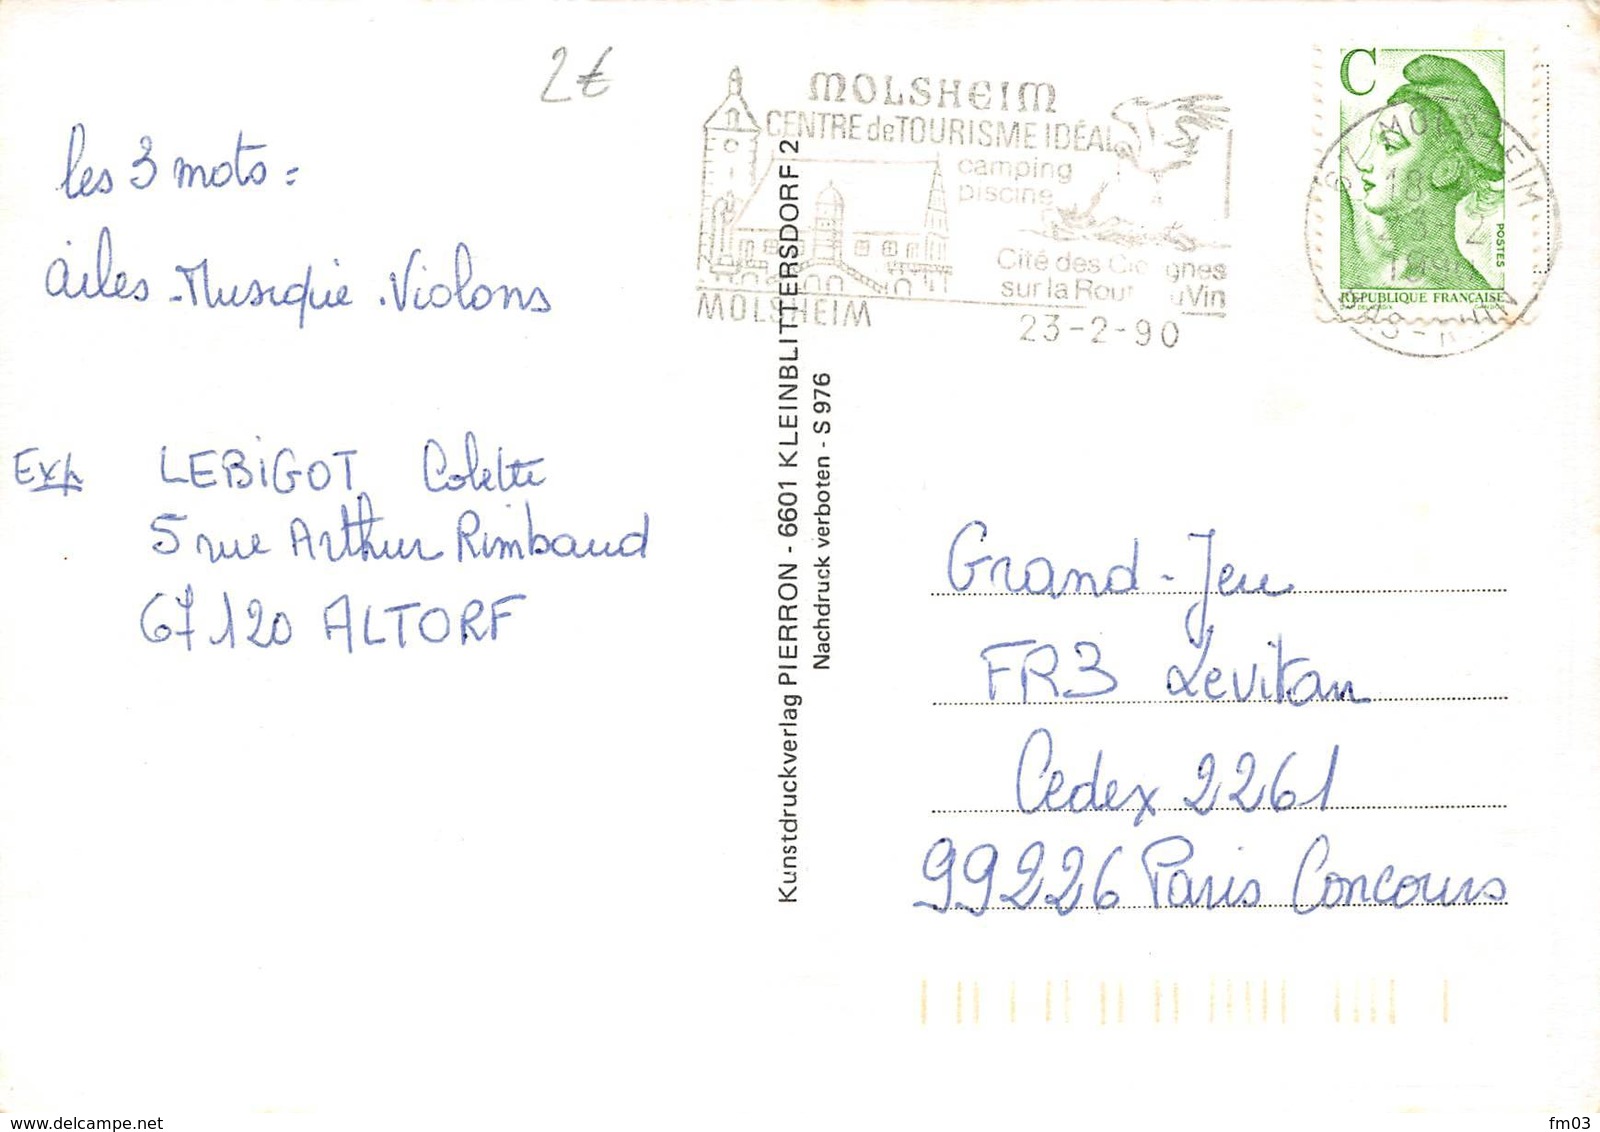 2€
les 3 mots =
Ailes - Musique - Violons
Exp LEBIGOT Colette
5 rue Arthur Rimbaud
67120 ALTORF
MOLSHEIM
CENTRE de TOURISME IDÉAL
camping
piscine
Cité des Cigognes
sur la Route du Vin
MOLSHEIM
23-2-90
Kunstdruckverlag PIERRON - 6601 KLEINBLITTERSDORF 2
Nachdruck verboten - S 976
C
POSTES
RÉPUBLIQUE FRANÇAISE
67 MOLSHEIM
18
23-2
BAS-RHIN
Grand-Jeu
FR3 Levitan
Cedex 2261
99226 Paris Concours
www.delcampe.net
fm03